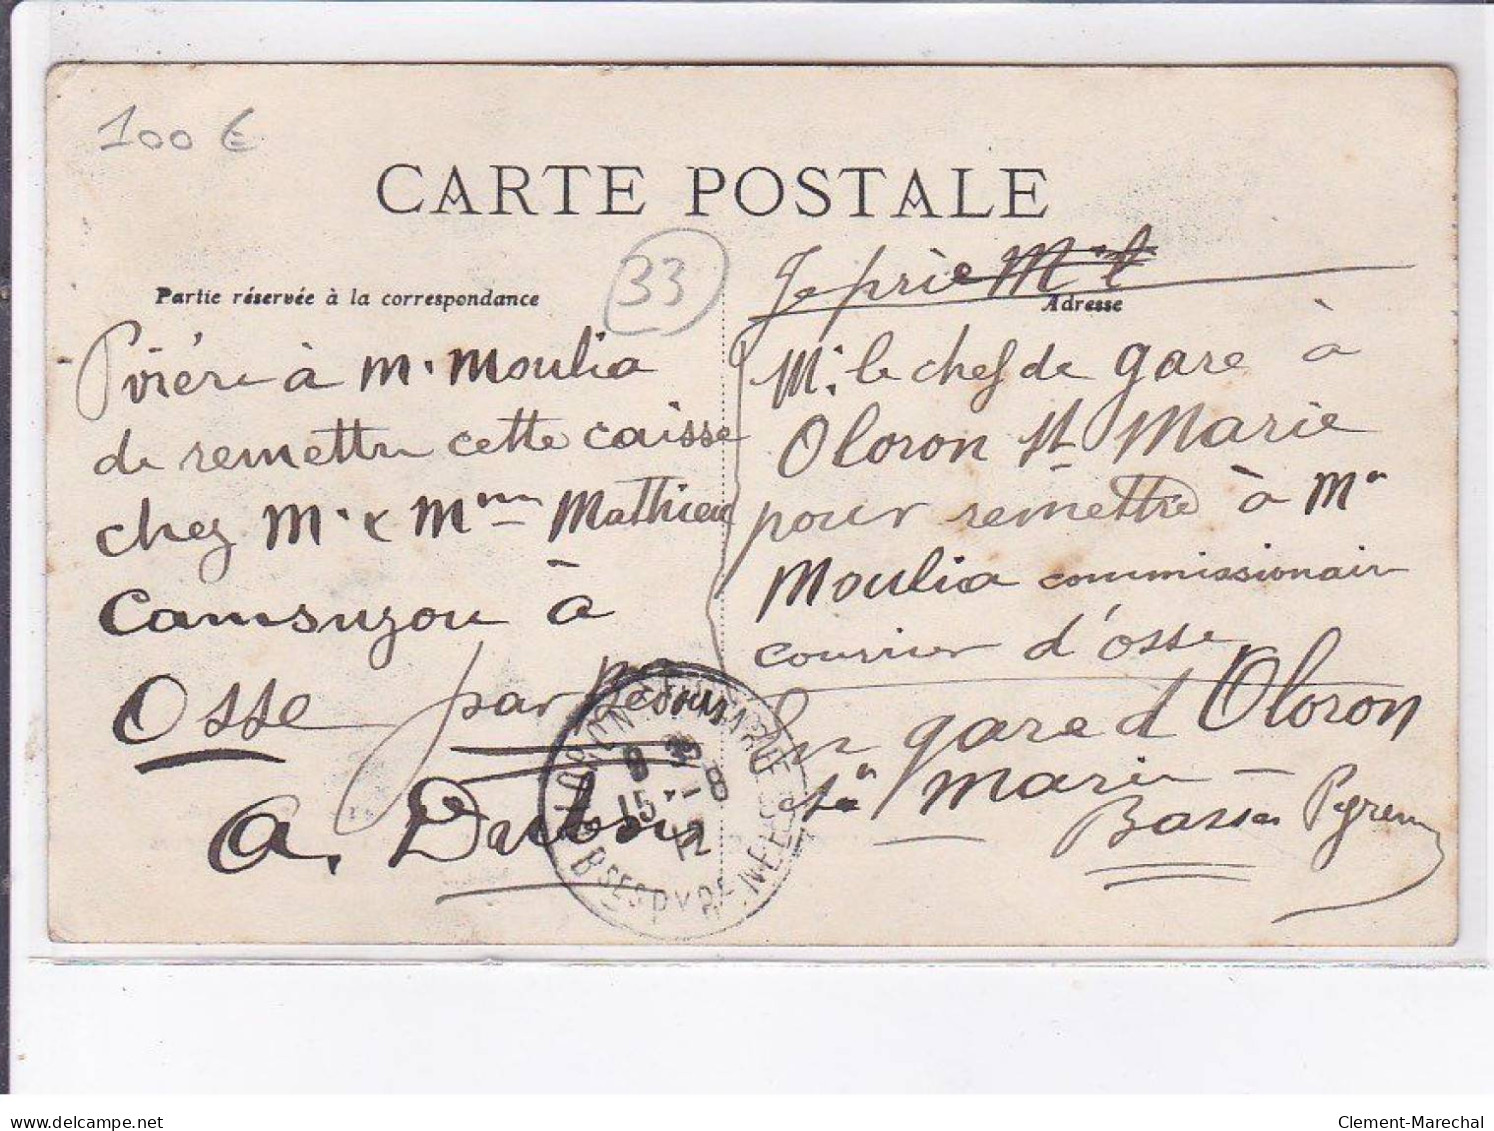 100 €
CARTE POSTALE
33
Partie réservée à la correspondance
Prière à M. Moulia
de remettre cette caisse
chez M. & Mme Mathieu
Camsuzou à
Osse par Bedous
A. Dubou
Je prie Mr l
Adresse
Mr. le chef de gare à
Oloron St Marie
pour remettre à Mr
Moulia commissionaire
courrier d'osse
En gare d'Oloron
Ste Marie –
Basses Pyrenees
OLORON-STE-MARIE
8 8
15 - 8
12
BSES PYRENEES
delcampe.net
Clement-Marechal